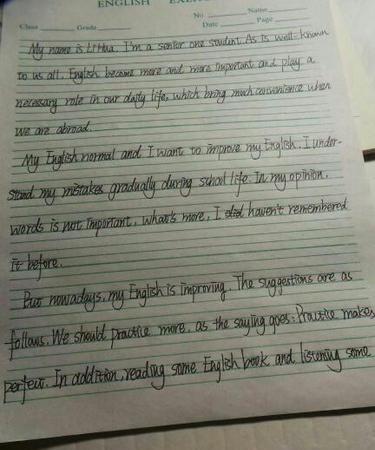 ENGLISH EXER
No Name
Class Grade Date Page
My name is Li Hua. I'm a senior one student. As is well-known
to us all, English become more and more important and play a
necessary role in our daily life, which bring much convenience when
we are abroad.
My English normal and I want to improve my English. I under-
stand my mistakes gradually during school life. In my opinion,
words is not important, what's more, I haven't remembered
it before.
But nowadays, my English is improving. The suggestions are as
follows. We should practice more, as the saying goes: Practice makes
perfect. In addition, reading some English book and listening some